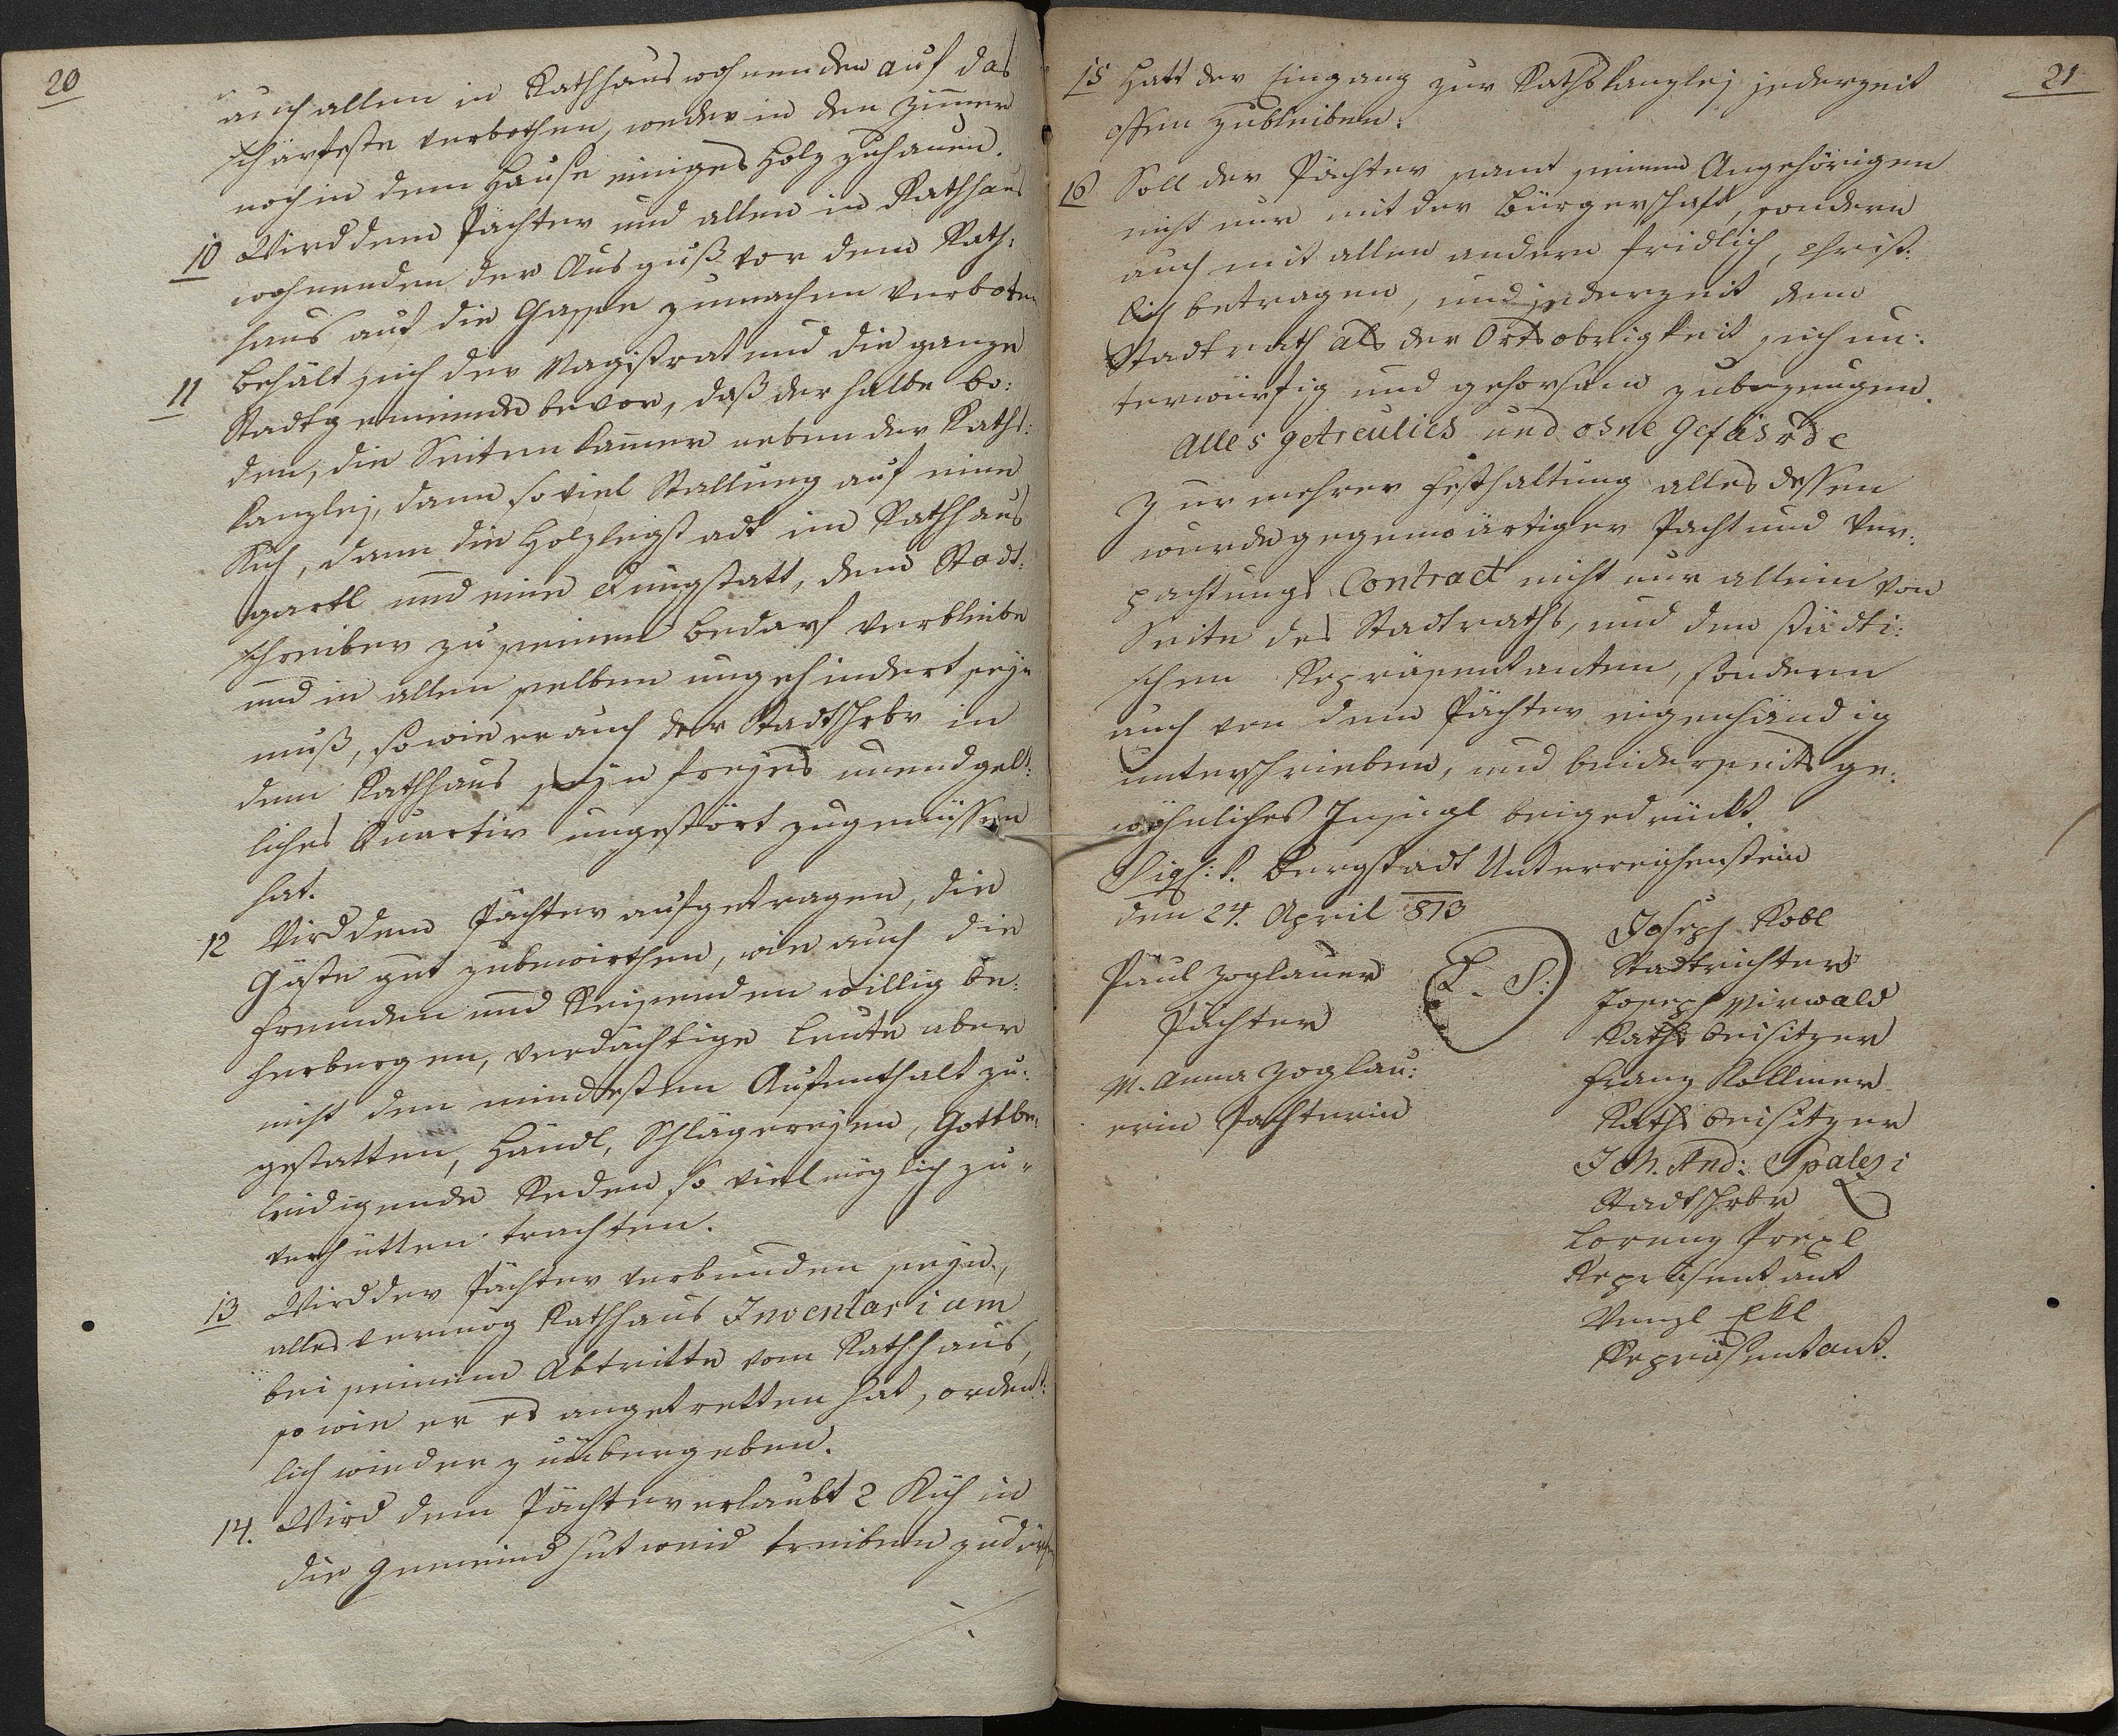 20
auch allen in Rathhaus wohnenden auf das
schärfeste verbothen, weder in den Zimmer
noch in dem Hause einiges Holz zuhauen.
10 Wird dem Pächter und allen in Rathhaus
wohnenden der Ausguß vor dem Rath:
haus auf die Gassen zumachen verboten
11 Behält sich der Magistrat und die ganze
Stadtgemeinde bevor, daß der halbe Bo:
den, die Seiten Kamer neben der Raths:
kanzlej, dann so viel Stallung auf eine
Kuh, dann die Holzlegstadt im Rathhaus
gartl und eine Dungstatt, dem Stadt:
schreiber zu seinem Bedarf verbleibe
und in allen selben ungehindert seyn
muß, so wie er auch der Stadtschrbr in
dem Rathhaus seyn freyes unendgelt:
liches Quartir ungestört zugenüssen
hat.
12 Wird dem Pächter aufgetragen, die
Gäste gut zubewirthen, wie auch die
Fremden und Reisenden willig be:
herbergen, verdächtige Leute aber
nicht den mindesten Aufenthalt zu:
gestatten, Händl, Schlägereyen, Gottbe:
leidigende Reden so viel möglich zu
verhütten trachten.
13 Wird der Pächter verbunden seyn,
alles vermög Rathhaus Inventarium
bei seinem Abtritte vom Rathhaus,
so wie er es angetretten hat, ordent:
lich wieder zuübergeben.
14. Wird dem Pächter erlaubt 2 Küh in
die Gemeind Hutweid treiben zudürfen
21
15 Hatt der Eingang zur Rathskanzlej jederzeit
offen zubleiben.
16 Soll der Pächter samt seinen Angehörigen
nicht nur mit der Bürgerschaft, sondern
auch mit allen andern fridlich, christ:
lich betragen, und jederzeit dem
Stadtrath als der Ortsobrigkeit sich un:
terwürfig und gehorsam zubezeugen.
Alles getreulich und ohne Gefährde
Zur mehrer Festhaltung alles dessen
wurde gegenwärtiger Pacht und Ver:
pachtungs Contract nicht nur allein von
Seite des Stadtraths, und den städti:
schen Repräsentanten, sondern
auch von dem Pächter eigenhändig
unterschrieben, und beiderseits ge:
wöhnliches Insiegl beigedrückt.
Sigh: k. Bergstadt Unterreichenstein
den 24. April 813
Paul Zoglauer
Pächter
M. Anna Zoglau:
erin Pachterin
L. S.
Joseph Kobl
Stadtrichter
Joseph Mirwald
Raths Beisitzer
Franz Kollmer
Raths Beisitzer
Joh. And: Spalezi
Stadtschrbr
Lorenz Prexl
Repräsentant
Wenzl Ekl
Repräsentant.